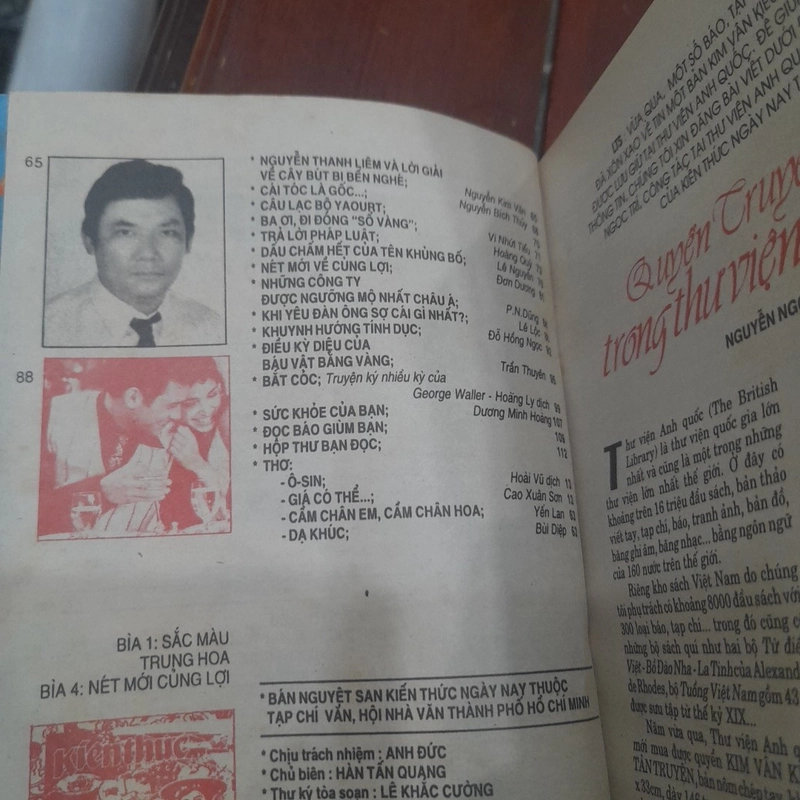 65
* NGUYỄN THANH LIÊM VÀ LỜI GIẢI
VỀ CÂY BÚT BI BẾN NGHÉ; Nguyễn Kim Vân 65
* CÁI TÓC LÀ GỐC...; Nguyễn Bích Thủy 68
* CÂU LẠC BỘ YAOURT;
* BA ƠI, ĐI ĐÓNG "SỔ VÀNG"; Vi Nhứt Tiếu 71
* TRẢ LỜI PHÁP LUẬT; Hoàng Quý
* DẤU CHẤM HẾT CỦA TÊN KHỦNG BỐ; Lê Nguyễn
* NÉT MỚI VỀ CỦNG LỢI; Đơn Dương
* NHỮNG CÔNG TY
ĐƯỢC NGƯỠNG MỘ NHẤT CHÂU Á; P.N.Dũng
* KHI YÊU ĐÀN ÔNG SỢ CÁI GÌ NHẤT?; Lê Lộc
* KHUYNH HƯỚNG TÌNH DỤC; Đỗ Hồng Ngọc
* ĐIỀU KỲ DIỆU CỦA
BÁU VẬT BẰNG VÀNG; Trần Thuyên 95
88
* BẮT CÓC; Truyện ký nhiều kỳ của
George Waller - Hoàng Ly dịch 99
* SỨC KHỎE CỦA BẠN; Dương Minh Hoàng 107
* ĐỌC BÁO GIÙM BẠN; 109
* HỘP THƯ BẠN ĐỌC; 112
* THƠ:
- Ô-SIN; Hoài Vũ dịch 13
- GIÁ CÓ THỂ...; Cao Xuân Sơn 13
- CẦM CHÂN EM, CẦM CHÂN HOA; Yến Lan 63
- DẠ KHÚC; Bùi Diệp 63
BÌA 1: SẮC MÀU
TRUNG HOA
BÌA 4: NÉT MỚI CỦNG LỢI
Kiến thức
* BÁN NGUYỆT SAN KIẾN THỨC NGÀY NAY THUỘC
TẠP CHÍ VĂN, HỘI NHÀ VĂN THÀNH PHỐ HỒ CHÍ MINH
* Chịu trách nhiệm : ANH ĐỨC
* Chủ biên : HÀN TẤN QUANG
* Thư ký tòa soạn : LÊ KHẮC CƯỜNG
LTS : VỪA QUA, MỘT SỐ BÁO, TẠP
ĐÃ XÔN XAO VỀ TIN MỘT BẢN KIM VÂN KIỀU
ĐƯỢC LƯU GIỮ TẠI THƯ VIỆN ANH QUỐC. ĐỂ GIÚP
THÔNG TIN, CHÚNG TÔI XIN ĐĂNG BÀI VIẾT DƯỚI
NGỌC TRÍ, CÔNG TÁC TẠI THƯ VIỆN ANH QU
CỦA KIẾN THỨC NGÀY NAY T
Quyển Truyệ
trong thư viện
NGUYỄN NGỌ
Thư viện Anh quốc (The British
Library) là thư viện quốc gia lớn
nhất và cũng là một trong những
thư viện lớn nhất thế giới. Ở đây có
khoảng trên 16 triệu đầu sách, bản thảo
viết tay, tạp chí, báo, tranh ảnh, bản đồ,
băng ghi âm, băng nhạc... bằng ngôn ngữ
của 160 nước trên thế giới.
Riêng kho sách Việt Nam do chúng
tôi phụ trách có khoảng 8000 đầu sách với
300 loại báo, tạp chí... trong đó cũng có
những bộ sách quí như hai bộ Từ điể
Việt - Bồ Đào Nha - La Tinh của Alexand
de Rhodes, bộ Tuồng Việt Nam gồm 43
được sưu tập từ thế kỷ XIX...
Năm vừa qua, Thư viện Anh q
mới mua được quyển KIM VÂN K
TÂN TRUYỆN, bản nôm chép tay,
x 33cm, dày 146